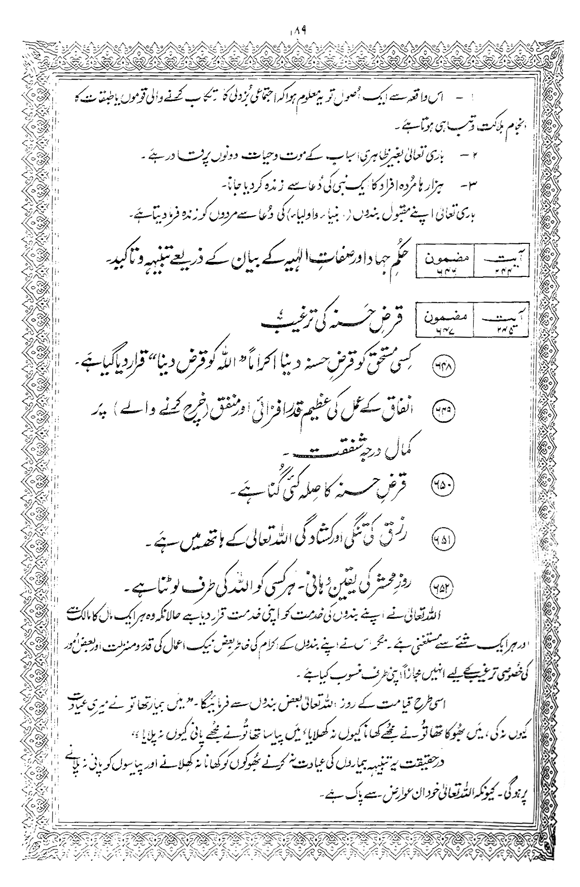 ۱۸۹
۱ - اس واقعہ سے ایک اصول تو یہ معلوم ہوا کہ اجتماعی بُزدلی کا ارتکاب کرنے والی قوموں یا طبقات کا
انجام ہلاکت و تباہی ہوتا ہے۔
۲ - باری تعالیٰ بغیر ظاہری اسباب کے موت و حیات دونوں پر قادر ہے۔
۳ - ہزارہا مُردہ افراد کا ایک نبی کی دُعا سے زندہ کر دیا جانا۔
باری تعالیٰ اپنے مقبول بندوں (انبیاء و اولیاء) کی دُعا سے مردوں کو زندہ فرما دیتا ہے۔
آیت ۲۴۴ مضمون ۶۴۶ حکمِ جہاد اور صفاتِ الٰہیہ کے بیان کے ذریعے تنبیہہ و تاکید۔
آیت ۲۴۵ مضمون ۶۴۷ قرضِ حسنہ کی ترغیب
۶۴۸ کسی مستحق کو قرضِ حسنہ دینا اکراماً "اللہ کو قرض دینا" قرار دیا گیا ہے۔
۶۴۹ انفاق کے عمل کی عظیم قدر افزائی اور منفق (خرچ کرنے والے) پر
کمال درجہ شفقت۔
۶۵۰ قرضِ حسنہ کا صلہ کئی گُنا ہے۔
۶۵۱ رزق کی تنگی اور کشادگی اللہ تعالیٰ کے ہاتھ میں ہے۔
۶۵۲ روزِ محشر کی یقین دہانی۔ ہر کسی کو اللہ کی طرف لوٹنا ہے۔
اللہ تعالیٰ نے اپنے بندوں کی خدمت کو اپنی خدمت قرار دیا ہے حالانکہ وہ ہر ایک مال کا مالک ہے
اور ہر ایک شئے سے مستغنی ہے۔ مگر اس نے اپنے بندوں کے اکرام کی خاطر بعض نیک اعمال کی قدر و منزلت اور بعض امور
کی خصوصی ترغیب کے لیے انہیں مجازاً اپنی طرف منسوب کیا ہے۔
اسی طرح قیامت کے روز اللہ تعالیٰ بعض بندوں سے فرمائیگا۔ "میں بیمار تھا تُو نے میری عیادت
کیوں نہ کی، میں بھُوکا تھا تُو نے مجھے کھانا کیوں نہ کھلایا، میں پیاسا تھا تُو نے مجھے پانی کیوں نہ پلایا"
درحقیقت یہ تنبیہہ بیماروں کی عیادت نہ کرنے بھُوکوں کو کھانا نہ کھلانے اور پیاسوں کو پانی نہ پلانے
پر ہوگی۔ کیونکہ اللہ تعالیٰ خود ان عوارض سے پاک ہے۔